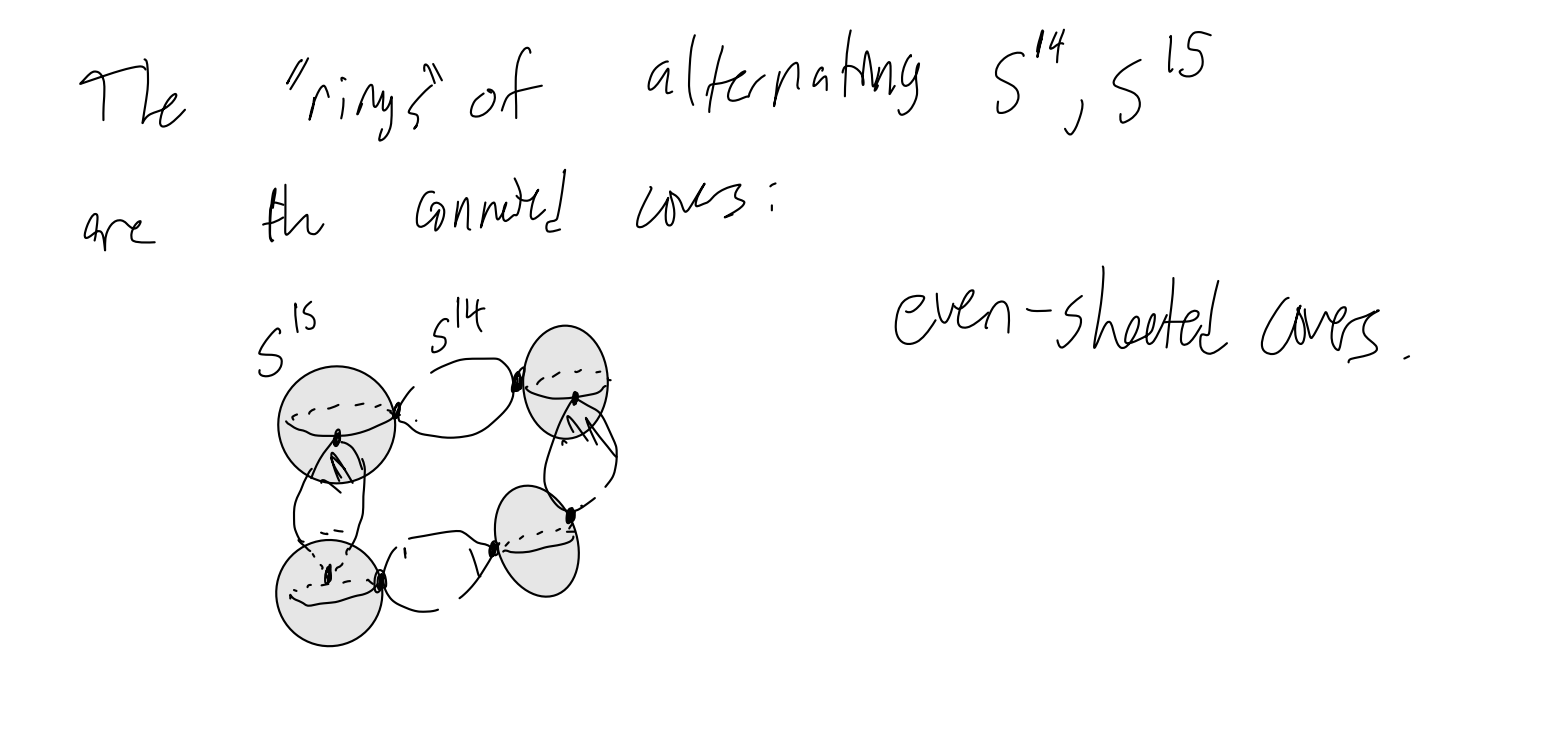 The "rings" of alternating S^14, S^15
are the connected covers:
even-sheeted covers.
S^15 S^14